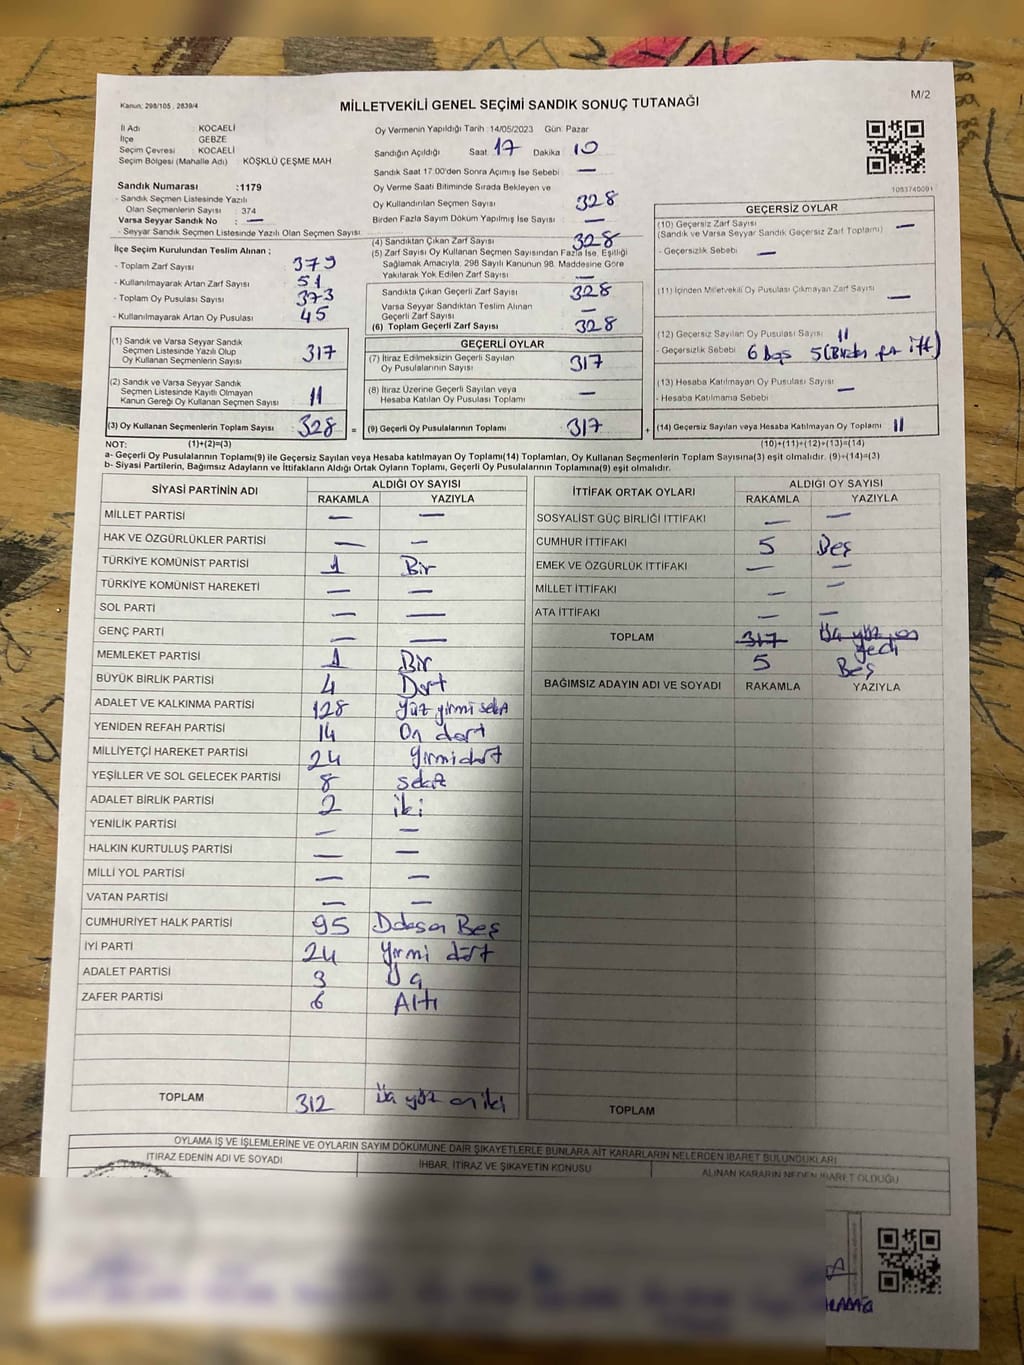 Kanun: 298/105 , 2839/4
MİLLETVEKİLİ GENEL SEÇİMİ SANDIK SONUÇ TUTANAĞI
M/2
İl Adı : KOCAELİ
İlçe : GEBZE
Seçim Çevresi : KOCAELİ
Seçim Bölgesi (Mahalle Adı) : KÖŞKLÜ ÇEŞME MAH
Sandık Numarası :1179
- Sandık Seçmen Listesinde Yazılı
Olan Seçmenlerin Sayısı : 374
Varsa Seyyar Sandık No : —
- Seyyar Sandık Seçmen Listesinde Yazılı Olan Seçmen Sayısı
İlçe Seçim Kurulundan Teslim Alınan ;
- Toplam Zarf Sayısı 379
- Kullanılmayarak Artan Zarf Sayısı 51
- Toplam Oy Pusulası Sayısı 373
- Kullanılmayarak Artan Oy Pusulası 45
(1) Sandık ve Varsa Seyyar Sandık
Seçmen Listesinde Yazılı Olup
Oy Kullanan Seçmenlerin Sayısı 317
(2) Sandık ve Varsa Seyyar Sandık
Seçmen Listesinde Kayıtlı Olmayan
Kanun Gereği Oy Kullanan Seçmen Sayısı 11
(3) Oy Kullanan Seçmenlerin Toplam Sayısı 328 =
Oy Vermenin Yapıldığı Tarih :14/05/2023 Gün: Pazar
Sandığın Açıldığı Saat 17 Dakika 10
Sandık Saat 17.00'den Sonra Açımış İse Sebebi —
Oy Verme Saati Bitiminde Sırada Bekleyen ve
Oy Kullandırılan Seçmen Sayısı 328
Birden Fazla Sayım Döküm Yapılmış İse Sayısı —
(4) Sandıktan Çıkan Zarf Sayısı 328
(5) Zarf Sayısı Oy Kullanan Seçmen Sayısından Fazla İse, Eşitliği
Sağlamak Amacıyla, 298 Sayılı Kanunun 98. Maddesine Göre
Yakılarak Yok Edilen Zarf Sayısı —
Sandıkta Çıkan Geçerli Zarf Sayısı 328
Varsa Seyyar Sandıktan Teslim Alınan
Geçerli Zarf Sayısı —
(6) Toplam Geçerli Zarf Sayısı 328
GEÇERLİ OYLAR
(7) İtiraz Edilmeksizin Geçerli Sayılan
Oy Pusulalarının Sayısı 317
(8) İtiraz Üzerine Geçerli Sayılan veya
Hesaba Katılan Oy Pusulası Toplamı —
(9) Geçerli Oy Pusulalarının Toplamı 317 +
1053740091
GEÇERSİZ OYLAR
(10) Geçersiz Zarf Sayısı —
(Sandık ve Varsa Seyyar Sandık Geçersiz Zarf Toplamı)
- Geçersizlik Sebebi —
(11) İçinden Milletvekili Oy Pusulası Çıkmayan Zarf Sayısı —
(12) Geçersiz Sayılan Oy Pusulası Sayısı 11
- Geçersizlik Sebebi 6 Boş 5
(13) Hesaba Katılmayan Oy Pusulası Sayısı —
- Hesaba Katılmama Sebebi
(14) Geçersiz Sayılan veya Hesaba Katılmayan Oy Toplamı 11
NOT: (1)+(2)=(3) (10)+(11)+(12)+(13)=(14)
a- Geçerli Oy Pusulalarının Toplamı(9) ile Geçersiz Sayılan veya Hesaba katılmayan Oy Toplamı(14) Toplamları, Oy Kullanan Seçmenlerin Toplam Sayısına(3) eşit olmalıdır. (9)+(14)=(3)
b- Siyasi Partilerin, Bağımsız Adayların ve İttifakların Aldığı Ortak Oyların Toplamı, Geçerli Oy Pusulalarının Toplamına(9) eşit olmalıdır.
SİYASİ PARTİNİN ADI ALDIĞI OY SAYISI
RAKAMLA YAZIYLA
MİLLET PARTİSİ — —
HAK VE ÖZGÜRLÜKLER PARTİSİ — —
TÜRKİYE KOMÜNİST PARTİSİ 1 Bir
TÜRKİYE KOMÜNİST HAREKETİ — —
SOL PARTİ — —
GENÇ PARTİ — —
MEMLEKET PARTİSİ 1 Bir
BÜYÜK BİRLİK PARTİSİ 4 Dört
ADALET VE KALKINMA PARTİSİ 128 Yüz yirmi sekiz
YENİDEN REFAH PARTİSİ 14 On dört
MİLLİYETÇİ HAREKET PARTİSİ 24 Yirmi dört
YEŞİLLER VE SOL GELECEK PARTİSİ 8 Sekiz
ADALET BİRLİK PARTİSİ 2 iki
YENİLİK PARTİSİ — —
HALKIN KURTULUŞ PARTİSİ — —
MİLLİ YOL PARTİSİ — —
VATAN PARTİSİ — —
CUMHURİYET HALK PARTİSİ 95 Doksan Beş
İYİ PARTİ 24 Yirmi dört
ADALET PARTİSİ 3 Üç
ZAFER PARTİSİ 6 Altı
TOPLAM 312 Üç yüz on iki
İTTİFAK ORTAK OYLARI ALDIĞI OY SAYISI
RAKAMLA YAZIYLA
SOSYALİST GÜÇ BİRLİĞİ İTTİFAKI — —
CUMHUR İTTİFAKI 5 Beş
EMEK VE ÖZGÜRLÜK İTTİFAKI — —
MİLLET İTTİFAKI — —
ATA İTTİFAKI — —
TOPLAM 317 Üç yüz on
yedi
5 Beş
BAĞIMSIZ ADAYIN ADI VE SOYADI RAKAMLA YAZIYLA
TOPLAM
OYLAMA İŞ VE İŞLEMLERİNE VE OYLARIN SAYIM DÖKÜMÜNE DAİR ŞİKAYETLERLE BUNLARA AİT KARARLARIN NELERDEN İBARET BULUNDUKLARI
İTİRAZ EDENİN ADI VE SOYADI İHBAR, İTİRAZ VE ŞİKAYETİN KONUSU ALINAN KARARIN NEDEN İBARET OLDUĞU